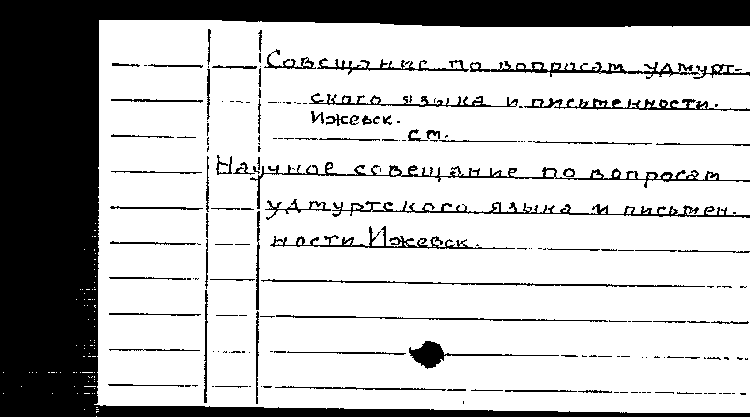 Совещание по вопросам удмурт-
ского языка и письменности.
Ижевск.
см.
Научное совещание по вопросам
удмуртского языка и письмен-
ности. Ижевск.